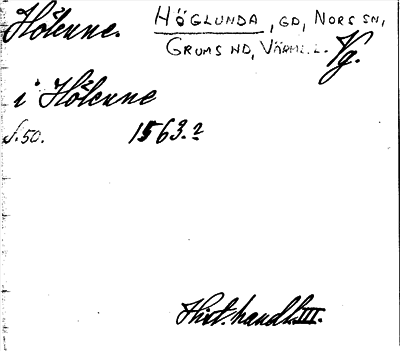 Hölunne. HÖGLUNDA, GD, NORS SN,
GRUMS HD, VÄRML. L. Vg.
i Hölunne
s. 50. 1563.2
Hist. handl. III.